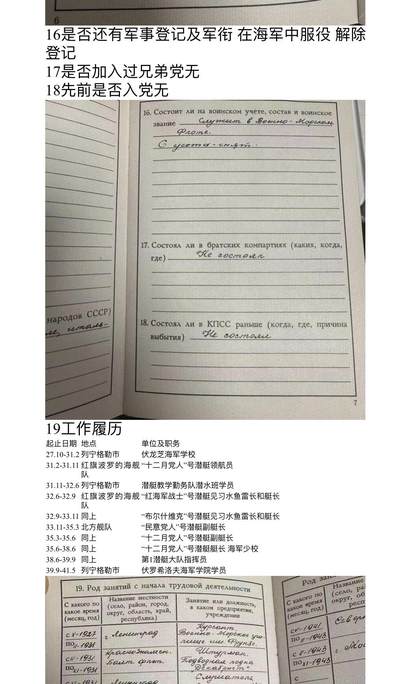 6
16是否还有军事登记及军衔 在海军中服役 解除
登记
17是否加入过兄弟党无
18先前是否入党无
16. Состоит ли на воинском учете, состав и воинское
звание Служит в Военно-Морском
Флоте.
С учета-снят.
17. Состоял ли в братских компартиях (каких, когда,
где) Не состоял
народов СССР)
18. Состоял ли в КПСС раньше (когда, где, причина
выбытия) Не состоял
7
19工作履历
起止日期 地点 单位及职务
27.10-31.2 列宁格勒市 伏龙芝海军学校
31.2-31.11 红旗波罗的海舰 “十二月党人”号潜艇领航员
队
31.11-32.6 列宁格勒市 潜艇教学勤务队潜水班学员
32.6-32.9 红旗波罗的海舰 “红海军战士”号潜艇见习水鱼雷长和艇长
队
32.9-33.11 同上 “布尔什维克”号潜艇见习水鱼雷长和艇长
33.11-35.3 北方舰队 “民意党人”号潜艇副艇长
35.3-35.6 同上 “十二月党人”号潜艇副艇长
35.6-38.6 同上 “十二月党人”号潜艇艇长 海军少校
38.6-39.9 同上 第1潜艇大队指挥员
39.9-41.5 列宁格勒市 伏罗希洛夫海军学院学员
19. Род занятий с начала трудовой деятельности
С какого по
какое время
(месяц, год)
Название местности
(село, район, город,
округ, область, край,
республика)
Занятие или должность,
в каком предприятии,
учреждении
С какого
какое время
(месяц, год)
г. Ленинград
Курсант
Военно-Морского уч
лища им. Фрунзе.
Краснознамен.
Балт. флот.
Штурман.
Подводная лодка
"Декабрист"
г. Ленинград
Слушатель